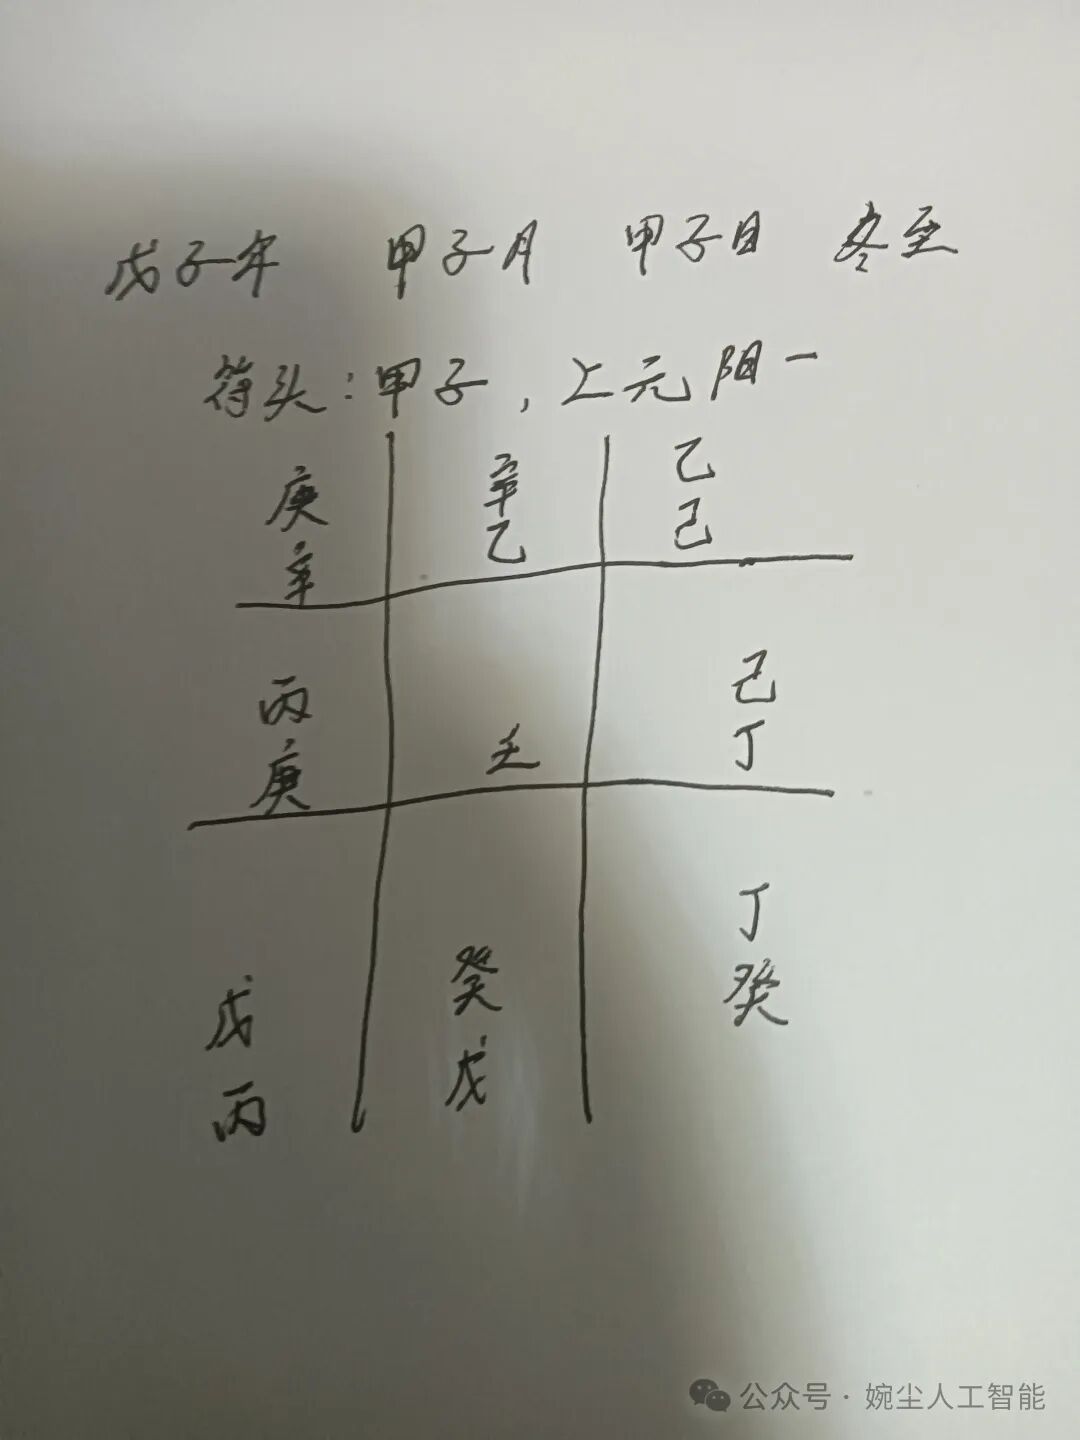 戊子年 甲子月 甲子日 冬至
符头:甲子,上元阳一
庚 辛 乙
辛 乙 己
丙 己
庚 壬 丁
戊 癸 丁
丙 戊 癸
公众号·婉尘人工智能